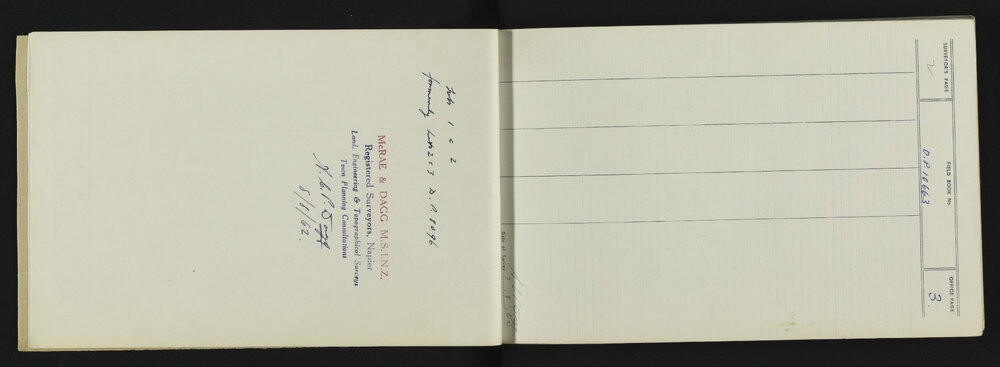 Lots 1 & 2
formerly Lots 2 & 3 D.P. 8096
McRAE & DAGG M.S.I.N.Z.
Registered Surveyors, Napier
Land, Engineering & Topographical Surveys
Town Planning Consultations
N.C.P. Dagg
8/8/62.
SURVEYOR'S PAGE
2
FIELD BOOK No.
D.P. 10663
OFFICE PAGE
3.
Date of Survey